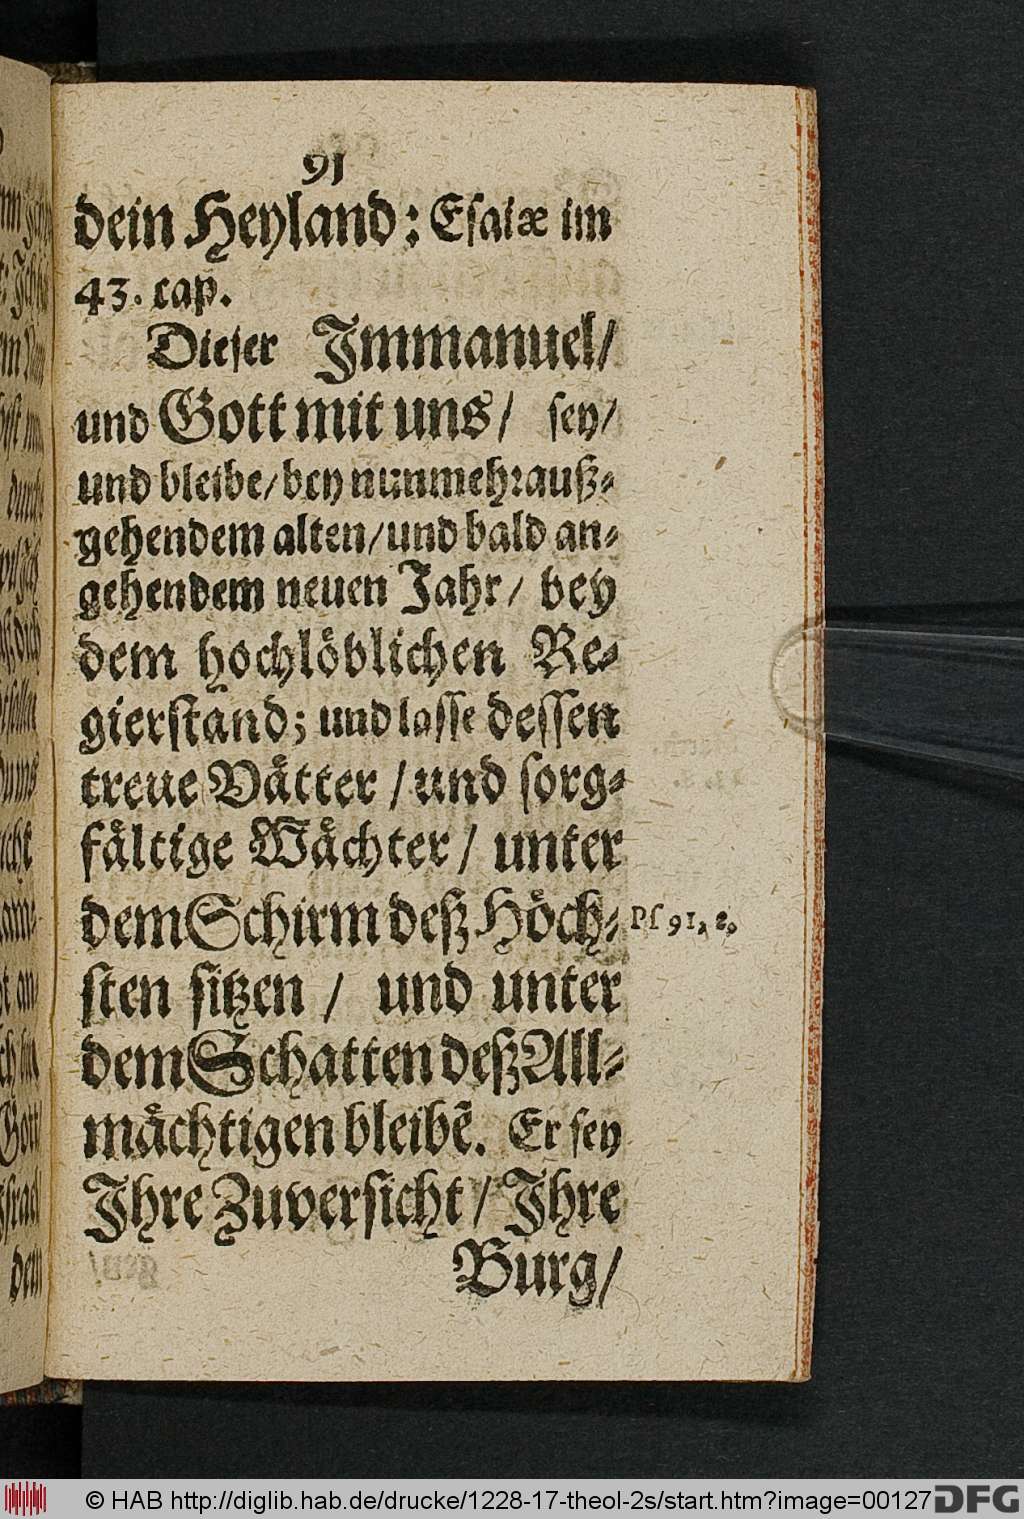 91
dein Heyland: Esaiæ im
43. cap.
Dieser Immanuel/
und Gott mit uns/ sey/
und bleibe/ bey nunmehr auß-
gehendem alten/ und bald an-
gehendem neuen Jahr/ bey
dem hochlöblichen Re-
gierstand; und lasse dessen
treue Vätter/ und sorg-
fältige Wächter/ unter
dem Schirm deß Höch-
Ps 91,
sten sitzen/ und unter
dem Schatten deß All-
mächtigen bleibẽ. Er sey
Ihre Zuversicht/ Ihre
Burg/
© HAB http://diglib.hab.de/drucke/1228-17-theol-2s/start.htm?image=00127
DFG